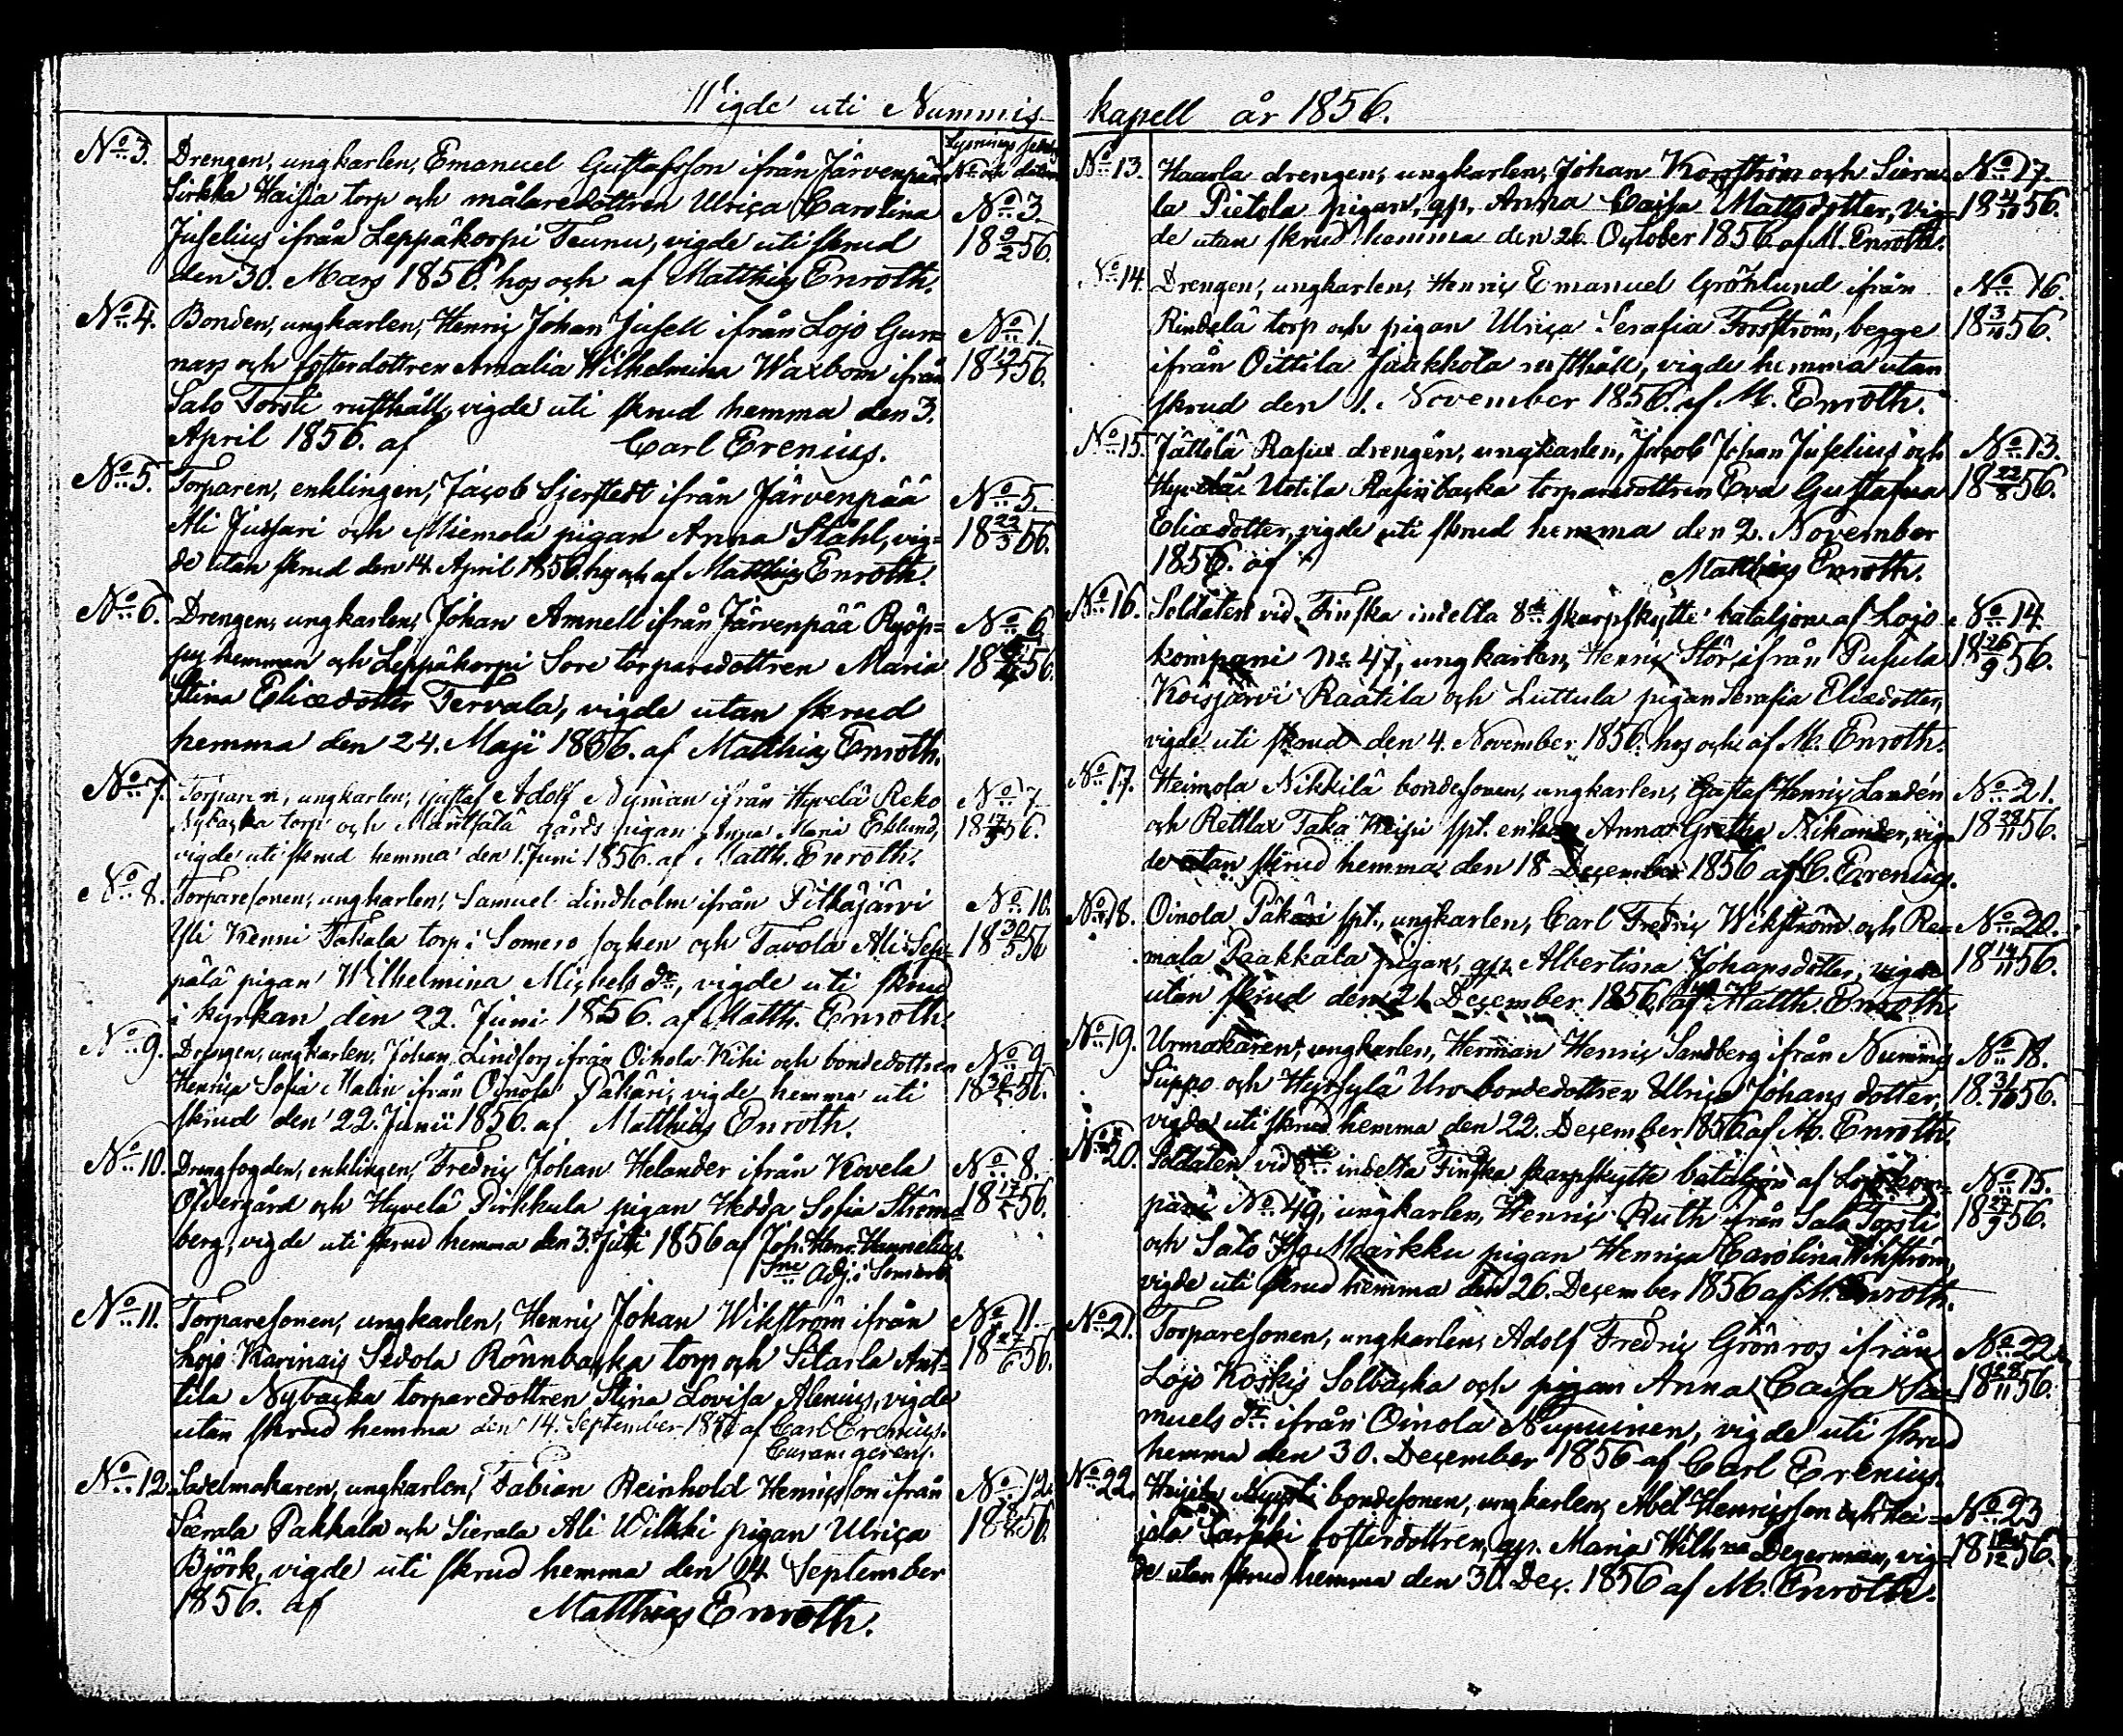 Wigde uti Nummis
Lysnings sedeln
No och datum
No 3.
Drengen, ungkarlen, Emanuel Gustafsson ifrån Järvenpää
Sirkka Haisia torp och målaredottren Ulrica Carolina
No 3.
Juselius ifrån Leppäkorpi Teunu, vigde uti skrud
18 9/2 56.
den 30. Mars 1856. hos och af Matthias Enroth.
No 4.
Bonden, ungkarlen, Henric Johan Jusell ifrån Lojo Gun-
No 1.
nars och fosterdottren Amalia Wilhelmina Waxbom ifrån
18 12/1 56.
Salo Torsti rusthåll, vigde uti skrud hemma den 3.
April 1856. af Carl Erenius.
No 5.
Torparen, enklingen, Jacob Sjerstedt ifrån Järvenpää
No 5.
Ali Jussari och Miemola pigan Anna Ståhl, vig-
18 22/3 56.
de utan skrud den 14. April 1856. hos och af Matthias Enroth.
No 6.
Drengen, ungkarlen, Johan Amnell ifrån Järvenpää Ryöp-
No 6.
pys hemman och Leppäkorpi Sore torparedottren Maria
18 56.
Stina Eliædotter Tervala, vigde utan skrud
hemma den 24. Maji 1856. af Matthias Enroth.
No 7.
Torparen, ungkarlen, Gustaf Adolf Nyman ifrån Hyvelä Reko
No 7.
Nybacka torp och Mäntsälä gårds pigan Anna Maria Eklund,
18 17/5 56.
vigde uti skrud hemma den 1. Juni 1856. af Matth. Enroth.
No 8.
Torparesonen, ungkarlen, Samuel Lindholm ifrån Pitkäjärvi
No 10.
Yli Kenni Takala torp i Somero socken och Tavola Ali Sep-
18 30/5 56
pälä pigan Wilhelmina Michelsdr, vigde uti skrud
i kyrkan den 22. Juni 1856. af Matth. Enroth.
No 9.
Drengen, ungkarlen, Johan Lindfors ifrån Oinola Kihi och bondedottren
No 9.
Henrica Sofia Malin ifrån Oinola Pakari, vigde hemma uti
18 30/5 56.
skrud den 22. Junii 1856. af Matthias Enroth.
No 10.
Drengfogden, enklingen, Fredric Johan Helander ifrån Kovela
No 8.
Öfvergård och Hyvelä Pirkkula pigan Hedda Sofia Ström-
18 17/5 56.
berg, vigde uti skrud hemma den 3. Juli 1856 af Joh. Henr. Hannelius
Sne Adj. i Somero
No 11.
Torparesonen, ungkarlen, Henric Johan Wikström ifrån
No 11.
Lojo Karinais Sedola Rönnbacka torp och Sitarla Ant-
18 27/6 56.
tila Nybacka torparedottren Stina Lovisa Alenius, vigde
utan skrud hemma den 14. September 1856 af Carl Erenius.
Curam gerens.
No 12.
Sadelmakaren, ungkarlen, Fabian Reinhold Henricsson ifrån
No 12.
Sierala Pakkala och Sierala Ali Wilkki pigan Ulrica
18 56.
Björk, vigde uti skrud hemma den 14 September
1856. af Matthias Enroth.
kapell år 1856.
No 13.
Haarla drengen, ungkarlen, Johan Korsström och Siera-
No 17.
la Pietola pigan, qp. Anna Caisa Mattsdotter, vig-
18 4/10 56.
de utan skrud hemma den 26. October 1856 af M. Enroth.
No 14.
Drengen, ungkarlen, Henric Emanuel Grönlund ifrån
No 16.
Rindelä torp och pigan Ulrica Serafia Forsström, begge
18 56.
ifrån Oittila Jaakkola rusthåll, vigde hemma utan
skrud den 1. November 1856. af M. Enroth.
No 15.
Jättölä Rasu drengen, ungkarlen, Jacob Johan Juselius och
No 13.
Hyvelä Uotila Rasinbacka torparedottren Eva Gustafva
18 22/8 56.
Eliædotter, vigde uti skrud hemma den 2. November
1856. af Matthias Enroth.
No 16.
Soldaten vid Finska indelta 8de skarpskytte bataljonen af Lojo
No 14.
kompani No 47, ungkarlen, Henric Stör ifrån Pusula
18 26/9 56.
Koisjärvi Raatila och Luttula pigan Serafia Eliædotter,
vigde uti skrud den 4. November 1856. hos och af M. Enroth.
No 17.
Heimola Nikkilä bondesonen, ungkarlen, Gustaf Henric Landén
No 21.
och Retlax Taka Heisi spt. enkan Anna Gretha Nikander, vig-
18 28/11 56.
de utan skrud hemma den 18 December 1856 af C. Erenius.
No 18.
Oinola Pakari spt., ungkarlen, Carl Fredric Wikström och Ra-
No 20.
mala Paakkala pigan, qp. Albertina Johansdotter, vigde
18 14/11 56.
utan skrud den 21. December 1856. af Matth. Enroth.
No 19.
Urmakaren, ungkarlen, Herman Henric Sandberg ifrån Nummis
No 18.
Suppo och Hyrsylä Uro bondedottren Ulrica Johansdotter,
18 31/10 56.
vigde uti skrud hemma den 22. December 1856 af M. Enroth.
No 20.
Soldaten vid 8de indelta Finska skarpskytte bataljon af Lojo kom-
No 15.
pani No 49, ungkarlen, Henric Ruth ifrån Salo Torsti
18 27/9 56.
och Salo Iso Maarkku pigan Henrica Carolina Wikström,
vigde uti skrud hemma den 26. December 1856 af M. Enroth.
No 21.
Torparesonen, ungkarlen, Adolf Fredric Grönros ifrån
No 22.
Lojo Koskis Solbacka och pigan Anna Caisa Sa-
18 28/11 56.
muelsdr ifrån Oinola Nupuinen, vigde uti skrud
hemma den 30. December 1856 af Carl Erenius.
No 22.
bondesonen, ungkarlen, Abel Henricsson och Hei-
No 23
jala Sarkki fosterdottren, qp. Maria Wilh:na Degerman, vig-
18 56.
de utan skrud hemma den 30. Dec. 1856 af M. Enroth.